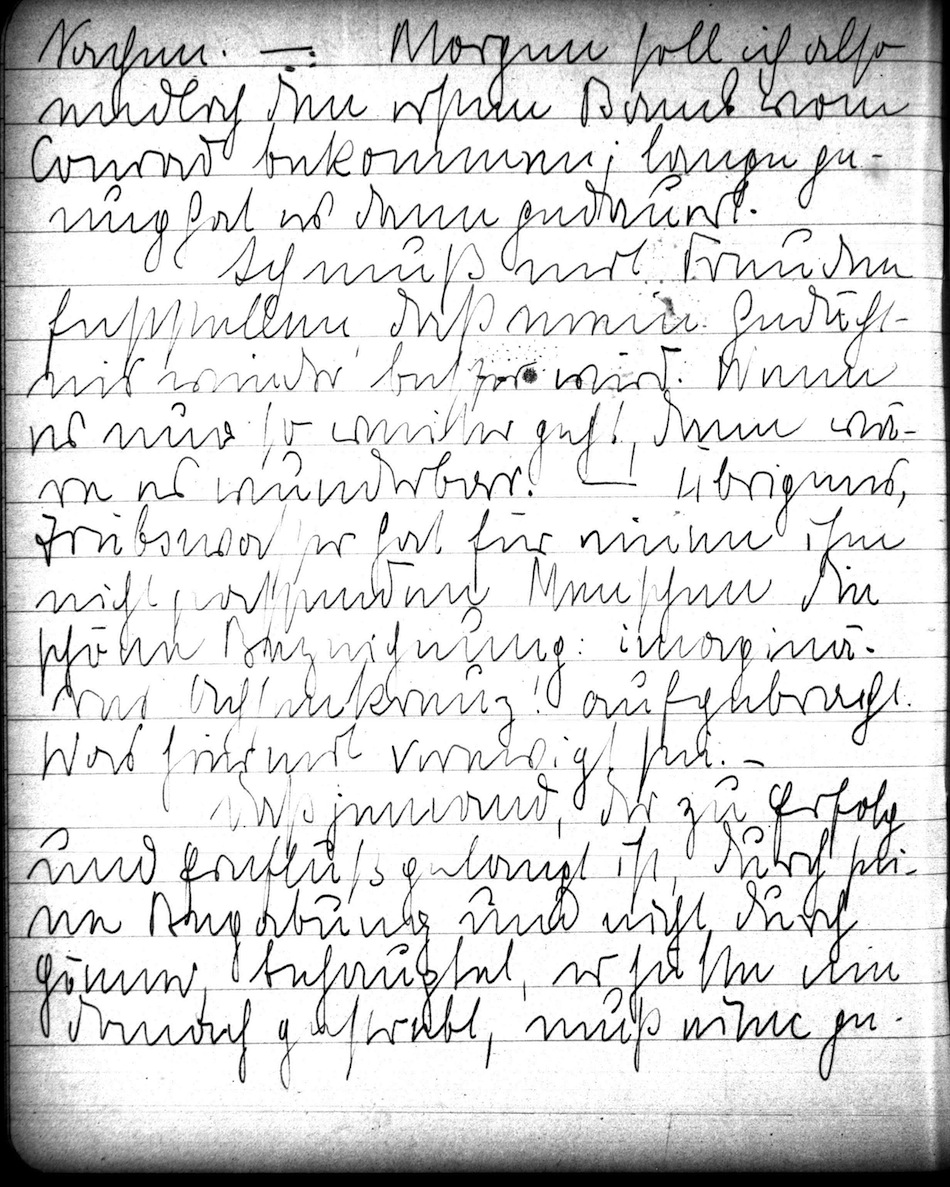 Sachen. — Morgen soll ich also
endlich den ersten Band vom
Conrad bekommen; lange ge-
nug hat es denn gedauert.
Ich muß mit Freuden
feststellen, daß mein Gedächt-
nis wieder besser wird. Wenn
es nur so weiter geht, dann wä-
re es wunderbar. — Übrigens,
Triebswasser hat für einen ihm
nicht passenden Menschen die
schöne Bezeichnung: imaginä-
res Achsenkreuz! aufgebracht.
Was hiermit verewigt sei. —
Daß jemand, der zu Erfolg
und Einfluß gelangt ist, durch sei-
ne Begabung und nicht durch
Gönner, behauptet, er hätte nie
danach gestrebt, muß eine ge-